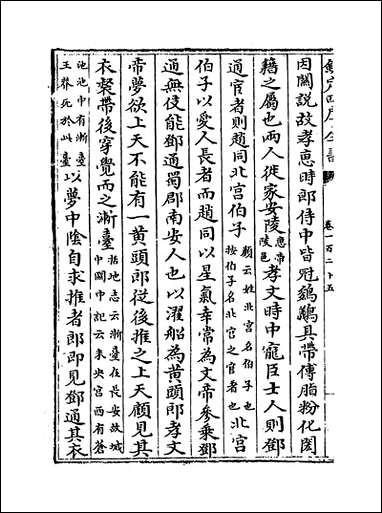 欽定四庫全書
卷一百二十五
因關說故孝惠時郎侍中皆冠鵔鸃具帶傅脂粉化閎
籍之屬也兩人徙家安陵惠帝陵邑孝文時中寵臣士人則鄧
通宦者則趙同北宮伯子顔云姓北宮名伯子也按伯子名北宮之宦者也北宮
伯子以愛人長者而趙同以星氣幸常為文帝參乘鄧
通無伎能鄧通蜀郡南安人也以濯船為黃頭郎孝文
帝夢欲上天不能有一黃頭郎從後推之上天顧見其
衣裻帶後穿覺而之漸臺括地志云漸臺在長安故城中關中記云未央宮西有蒼
池池中有漸臺王莽死於此臺以夢中陰自求推者郎即見鄧通其衣